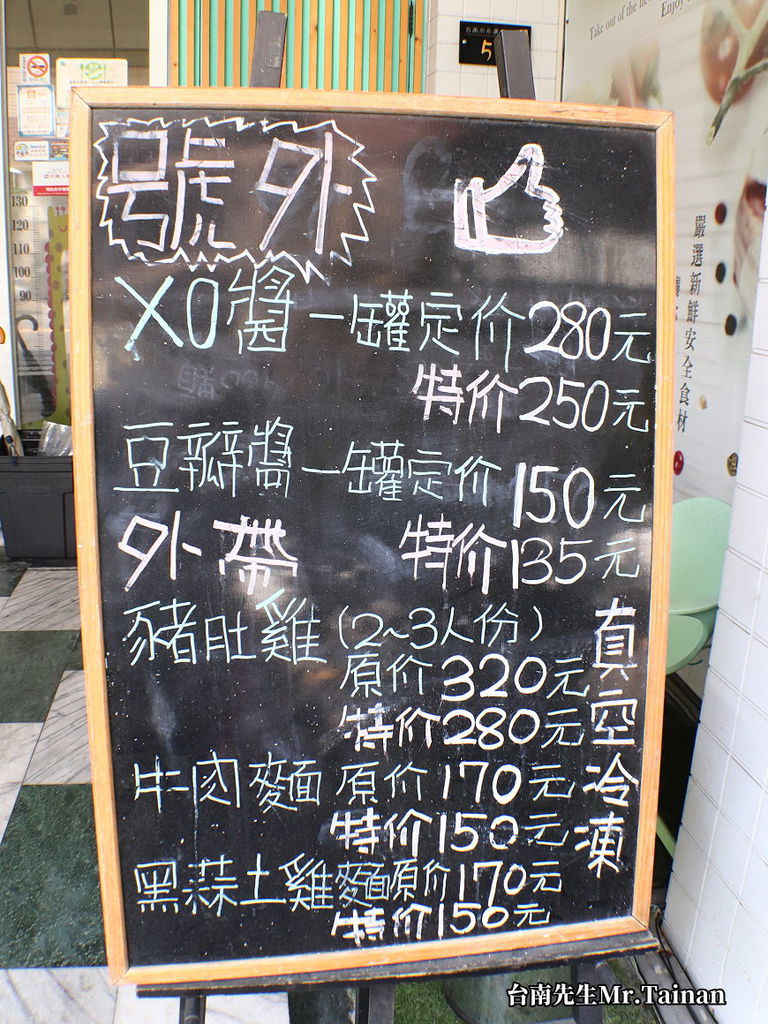 號外
XO醬一罐定价280元
特价250元
豆瓣醬一罐定价150元
外帶 特价135元
豬肚雞(2~3人份)
原价320元
特价280元
牛肉麵 原价170元
特价150元
黑蒜土雞麵原价170元
特价150元
真空冷凍
Take out of the
Enjoy
嚴選新鮮安全食材
5
130
120
110
100
90
台南先生Mr.Tainan